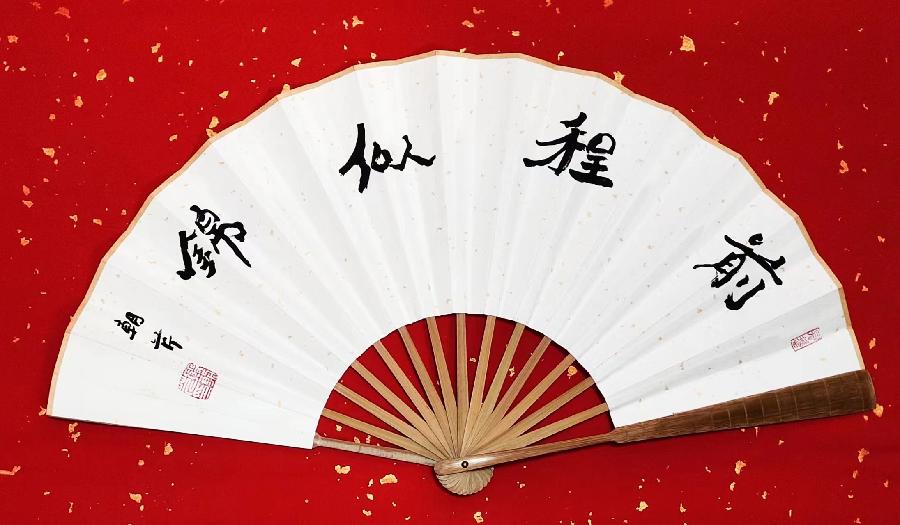 前程似锦
朝岸